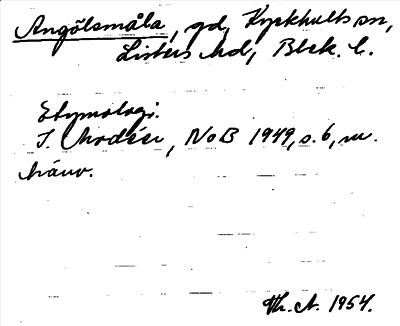 Angölsmåla, gd, Kyrkhults sn,
Listers hd, Blek. l.
Etymologi.
I. Modéer, NoB 1949, s. 6, m.
hänv.
Th. A. 1954.